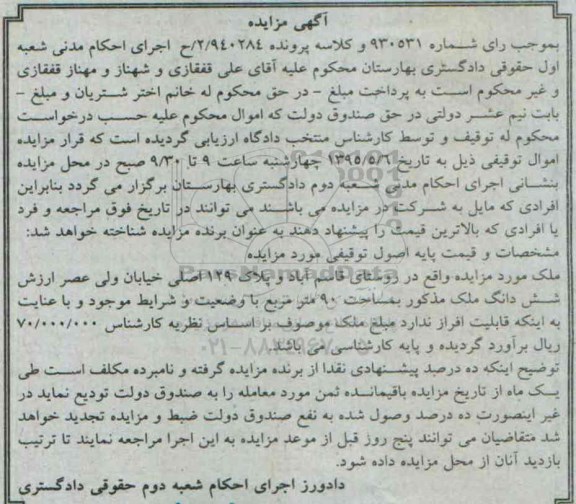 آگهی مزایده
بموجب رای شماره ۹۳۰۵۳۱ و کلاسه پرونده ۲/۹۴۰۲۸۴/ح اجرای احکام مدنی شعبه
اول حقوقی دادگستری بهارستان محکوم علیه آقای علی قفقازی و شهناز و مهناز قفقازی
و غیر محکوم است به پرداخت مبلغ - در حق محکوم له خانم اختر شتریان و مبلغ -
بابت نیم عشر دولتی در حق صندوق دولت که اموال محکوم علیه حسب درخواست
محکوم له توقیف و توسط کارشناس منتخب دادگاه ارزیابی گردیده است که قرار مزایده
اموال توقیفی ذیل به تاریخ ۱۳۹۵/۵/۶ چهارشنبه ساعت ۹ تا ۹/۳۰ صبح در محل مزایده
بنشانی اجرای احکام مدنی شعبه دوم دادگستری بهارستان برگزار می گردد بنابراین
افرادی که مایل به شرکت در مزایده می باشند می توانند در تاریخ فوق مراجعه و فرد
یا افرادی که بالاترین قیمت را پیشنهاد دهند به عنوان برنده مزایده شناخته خواهد شد:
مشخصات و قیمت پایه اصول توقیفی مورد مزایده
ParsNamadData
ملک مورد مزایده واقع در روستای قاسم آباد و پلاک ۱۲۹ اصلی خیابان ولی عصر ارزش
شش دانگ ملک مذکور بمساحت ۹۰ متر مربع با وضعیت و شرایط موجود و با عنایت
به اینکه قابلیت افراز ندارد مبلغ ملک موصوف بر اساس نظریه کارشناس ۷۰/۰۰۰/۰۰۰
ریال برآورد گردیده و پایه کارشناسی می باشد.
توضیح اینکه ده درصد پیشنهادی نقدا از برنده مزایده گرفته و نامبرده مکلف است طی
یک ماه از تاریخ مزایده باقیمانده ثمن مورد معامله را به صندوق دولت تودیع نماید در
غیر اینصورت ده درصد وصول شده به نفع صندوق دولت ضبط و مزایده تجدید خواهد
شد متقاضیان می توانند پنج روز قبل از موعد مزایده به این اجرا مراجعه نمایند تا ترتیب
بازدید آنان از محل مزایده داده شود.
دادورز اجرای احکام شعبه دوم حقوقی دادگستری